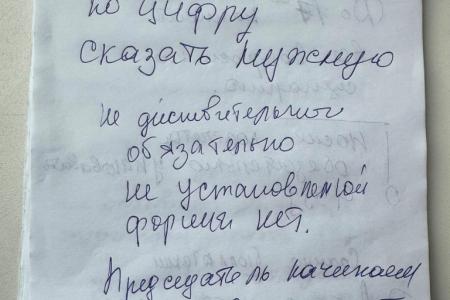 по цифру
сказать нужную
Не действительной
обязательно
не установленной
формы нет.
Председатель начинает